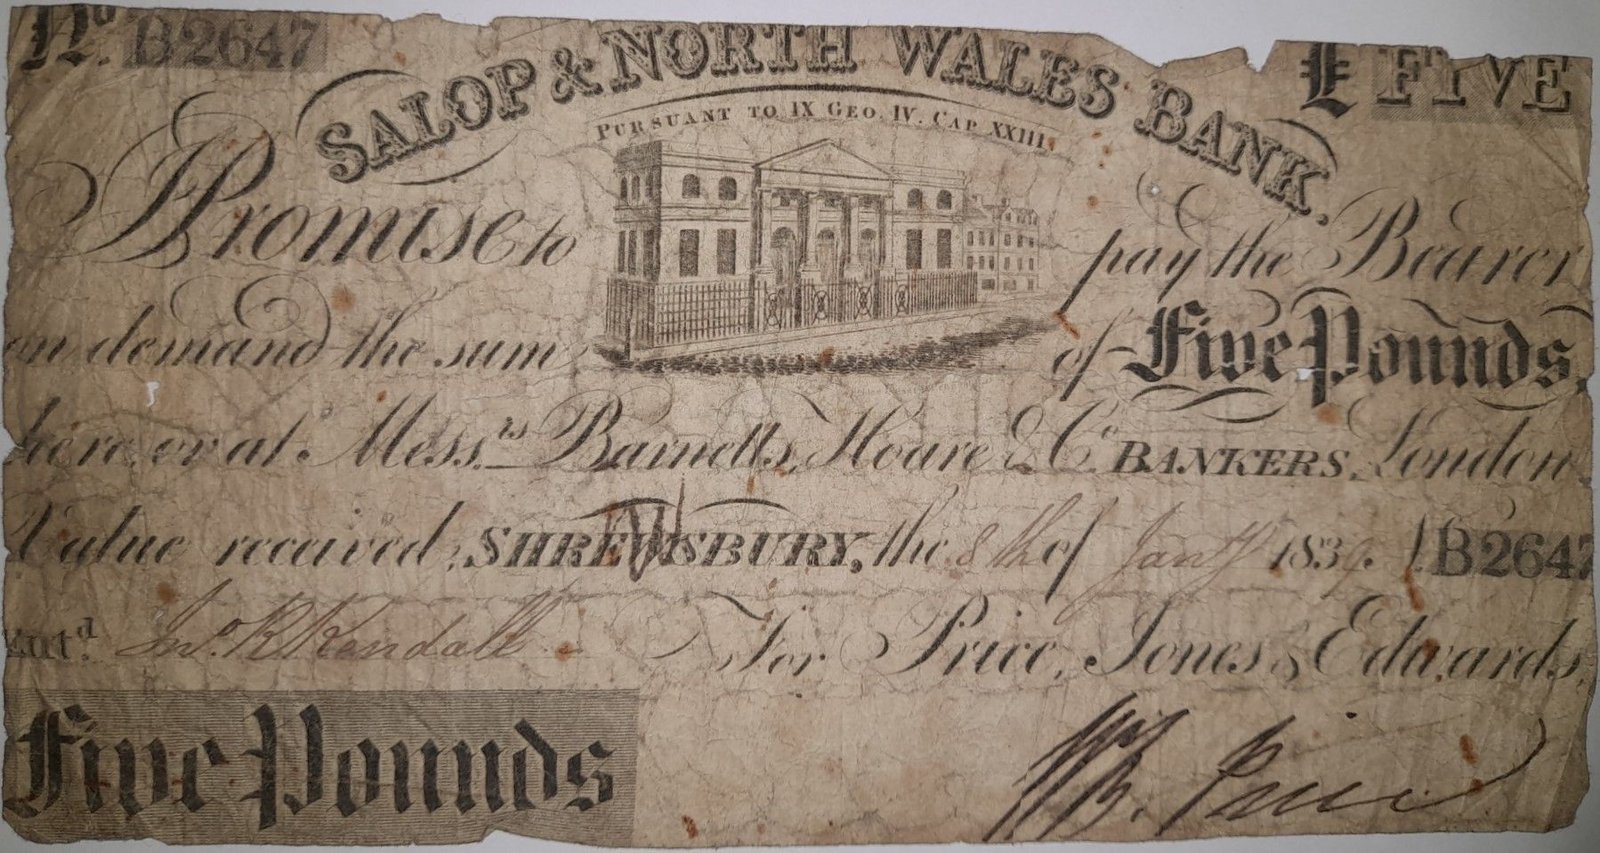 No. B2647 £ FIVE
SALOP & NORTH WALES BANK.
PURSUANT TO IX GEO. IV. CAP XXIII.
I Promise to pay the Bearer
on demand the sum of Five Pounds,
here, or at Mess.rs Barnetts, Hoare & Co. BANKERS, London
Value received, SHREWSBURY, the 8th of Jany 1839. B2647
Entd. Jno. R Kendall For Price, Jones & Edwards.
Five Pounds Wm. Price